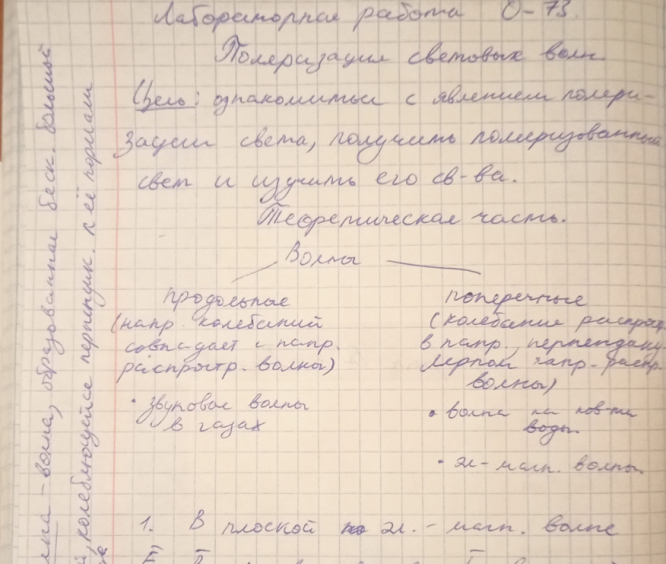 Лабораторная работа О-73.
Поляризация световых волн
Цель: ознакомиться с явлением поляри-
зации света, получить поляризованный
свет и изучить его св-ва.
Теоретическая часть.
Волны
продольные
(напр. колебаний
совпадает с напр.
распростр. волны)
• звуковые волны
в газах
поперечные
(колебание распростр.
в напр., перпендику-
лярном напр. распр.
волны)
• волна на пов-ти
воды.
• эл-магн. волны.
1. В плоской эл.-магн. волне
волна, образованная беск. большой
колеблющейся перпендик. к её нормали